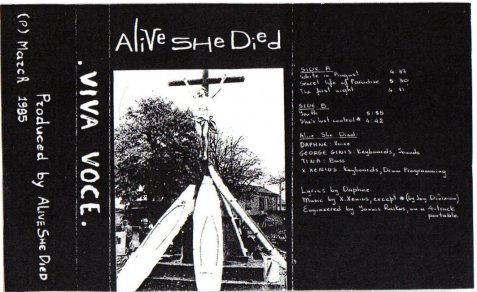 (P) March 1985
Produced by ALiVE SHE DiED
.VIVA VOCE.
ALiVE SHE DiED
SIDE A
White in August 4:37
Secret life of Paradise 5:30
The first night 4:11
SIDE B
Youth 5:55
She's lost control * 4:42
Alive She Died:
DAPHNE: Voice
GEORGE GINIS: Keyboards, Sounds
TINA: Bass
X.XENIOS: Keyboards, Drum Programming
Lyrics by Daphne
Music by X.Xenios, except * (by Joy Division)
Engineered by Yannis on a 4-track
portable.